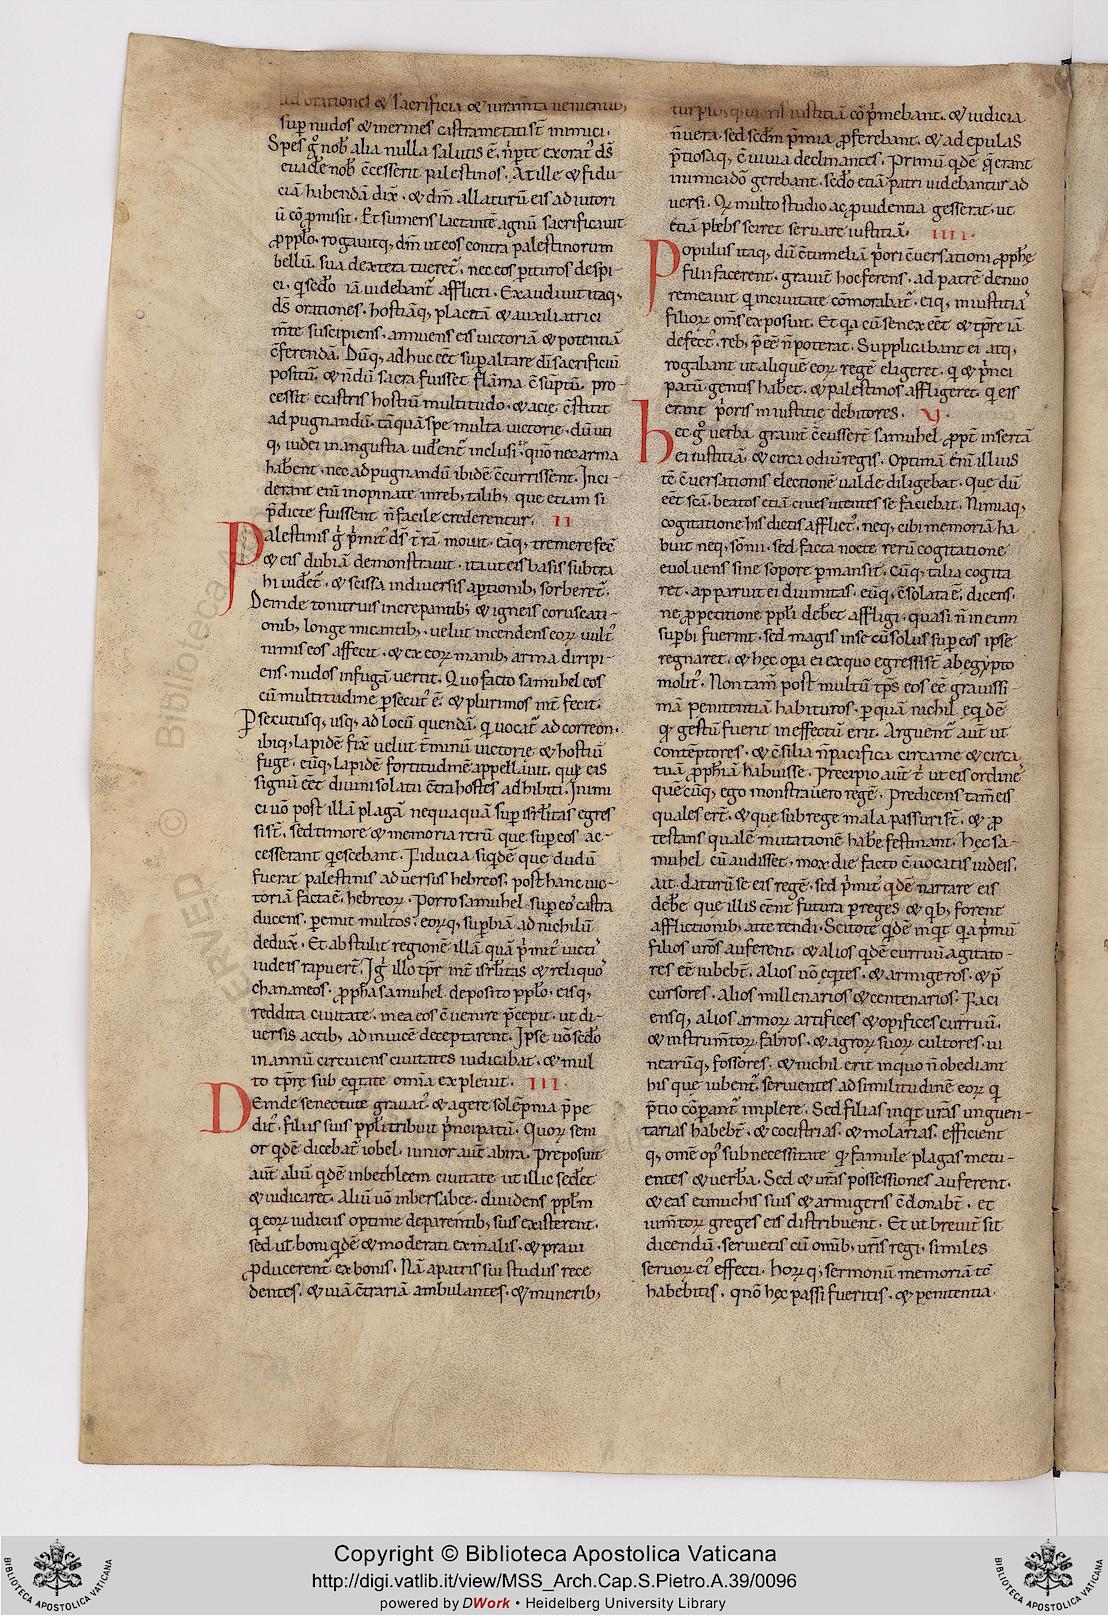 ad orationes & sacrificia & iuramta uenientib;
sup nudos & inermes castrametati st inimici.
Spes g̊ nob alia nulla salutis ē. n̄ pte exorat' ds̄
euadē nob c̄cesserit palestinos. At ille & fidu
ciā habendā dix. & dm̄ allaturū eis adiutori
ū cōpromisit. Et sumens lactantē agnū sacrificauit
p pplo. rogauitq; dm̄ ut eos contra palestinorum
bellū. sua dextera tueret'. nec eos pituros despi
ci. q sedo iā uidebant' afflicti. Exaudiuit itaq;
ds̄ orationes. hostiāq; placatā & auxiliatrici
m̄te suscipiens. annuens eis uictoriā & potentiā
c̄ferendā. Dūq; adhuc eēt sup altare dī sacrificiū
positū. & n̄dū sacra fuisset flāma c̄sūptū. pro-
cessit ecastris hostiū multitudo. & acie c̄stitit
ad pugnandū. tāquā spe multa uictorie. dū uti
q; iudei in angustia uiderent' inclusi. qn̄o nec arma
habent. nec ad pugnandū ibidē c̄currissent. Inci-
derant enī inopinate in reb; talib; que etiam si
p̄dicte fuissent n̄ facile crederentur. II
Palestinis g̊ p̄mit' ds̄ trā mouit. eāq; tremere fec̄
& eis dubiā demonstrauit. ita ut eis basis subtra
hi uidet'. & scissa in diuersis aptionib; sorberet'.
Deinde tonitruis increpantib; & igneis coruscati-
onib; longe micantib;. uelut incendens eor uult'
nimis eos affecit. & ex eor manib; arma diripi-
ens. nudos in fugā uertit. Quo facto samuhel eos
cū multitudine psecut' ē. & plurimos int̄ fecit.
Psecutusq; usq; ad locū quendā. qi uocat' ad correon.
ibiq; lapidē fix̄ uelut t̄minū uictorie & hostiū
fuge. eūq; lapidē fortitudinē appellauit. quē eis
signū eēt diuini solatii c̄tra hostes adhibiti. Inimi
ci uō post illā plagā nequaquā sup isrlitas egres
sist̄. sed timore & memoria rerū que sup eos ac-
cesserant qescebant. Fiducia siqdē que dudū
fuerat palestinis aduersus hebreos. post hanc uic-
toriā factaē. hebreor. Porro samuhel sup eos castra
ducens. pemit multos. eorq; supbiā ad nichilū
deduxit. Et abstulit regionē illā quā p̄mit' uicti
iudeis rapuert̄. Ig̊ illo tpr̄ int̄ isrlitas & reliquos
chananeos. p̄pha samuhel deposito pplo. eisq;
reddita ciuitate. in ea eos c̄uenire p̄cepit. ut di-
uersis actib; ad inuicē deceptarent. Ipse uō sedo
in annū circuiens ciuitates iudicabat. & mul
to tpr̄e sub eqtate omīa expleuit. III.
Deinde senectute grauat'. & agere solēpnia p̄pe
dit'. filiis suis ppli tribuit p̄ncipatū. Quor seni
or qdē dicebat' iohel. iunior aut̄ abira. Preposuit
aut̄ aliū qdē in bethleem ciuitate ut illic sedet
& iudicaret. Aliū uō in bersabee. diuidens pplm
qi eor iudiciis optime deparentib; suis existerent.
sed ut boni qdē & moderati ex malis. & praui
pducerent' ex bonis. Nā a patris sui studiis rece
dentes. & uiā c̄trariā ambulantes. & munerib;
turpib; iustitiā cōp̄mebant. & iudicia
n̄ uera. sed scdm p̄mia pferebant. & ad epulas
p̄tiosaq; c̄uiuia declinantes. Primū qdē qerant
inimica dō gerebant. sedo etiā patri uidebantur ad
uersi. Qi multo studio ac puidentia gesserat. ut
etiā plebs sciret seruare iustitiā. IIII.
Populus itaq; dū c̄tumeliā p̄ori c̄uersationi p̄phe
filii facerent. grauit̄ hoc ferens. ad patrē denuo
remeauit qi inciuitate cōmorabat'. eiq; iniustitiā
filior om̄s exposuit. Et qa cū senex eēt & tpr̄e iā
defect'. reb; p̄ eē n̄ poterat. Supplicabant ei atq;
rogabant ut aliquē eor regē eligeret. qi & p̄nci
patū gentis habet. & palestinos affligeret. qi eis
erant p̄oris iniustitie debitores. V.
hec g̊ uerba grauit̄ c̄cussert̄ samuhel ppt̄ insertā
ei iustitiā. & circa odiū regis. Optimā enī illius
tē c̄uersationis electionē ualde diligebat. que dū
eēt scā. beatos etiā ciues utentes se faciebat. Nimiaq;
cogitatione his dictis afflict'. neq; cibi memoriā ha
buit neq; sōnii. sed facta nocte rerū cogitatione
euoluens sine sopore pmansit. Cūq; talia cogita
ret. apparuit ei diuinitas. eūq; c̄solata ē. dicens.
ne p petitione ppli debet affligi. quasi n̄ in eum
supbi fuerint. sed magis in se cū solus sup eos ipse
regnaret. & hęc opa ei ex quo egressist̄ ab egypto
molit'. Non tam̄ post multū tp̄s eos eē grauissi-
mā penitentiā habituros. p quā nichil eqdē
qi gestū fuerit in effectū erit. Arguent' aut̄ ut
contēptores. & c̄silia n̄ pacifica circa me & circa
tuā p̄phiā habuisse. Precipio aut̄ t̄ ut eis ordines
quēcūq; ego monstrauero regē. Predicens tam̄ eis
quales ert̄. & que sub rege mala passuri st̄. & p
testans qualē mutationē habe festinant. Hęc sa-
muhel cū audisset. mox die facto c̄uocatis iudeis.
ait. daturū se eis regē. sed p̄mit' qdē narrare eis
debē que illis eēnt futura p reges & qib; forent
afflictionib; atterendi. Scitote qdē inqt. qa p̄mū
filios ur̄os auferent. & alios qdē currum agitato-
res eē iubebt̄. alios uō eqites. & armigeros. & p̄
cursores. Alios millenarios & centenarios. Faci
ensq; alios armor artifices & opifices curruū.
& instrumtor fabros. & agror suor cultores. ui
nearūq; fossores. & nichil erit in quo n̄ obediant
his que iubent'. seruientes ad similitudinē eor qi
p̄tio cōparant' implere. Sed filias inqt ur̄as unguen-
tarias habebt̄. & cocistrias. & molarias. efficient
q; omē op' sub necessitate qi famule plagas metu-
entes & uerba. Sed & ur̄as possessiones auferent.
& eas eunuchis suis & armigeris c̄donabt̄. et
iumtor greges eis distribuent. Et ut breuit̄ sit
dicendū. seruietis cū omīb; ur̄is regi. similes
seruor ei' effecti. Horq; sermonū memoriā tc̄
habebitis. qn̄o hęc passi fueritis. & penitentia.
Copyright © Biblioteca Apostolica Vaticana
http://digi.vatlib.it/view/MSS_Arch.Cap.S.Pietro.A.39/0096
powered by DWork • Heidelberg University Library